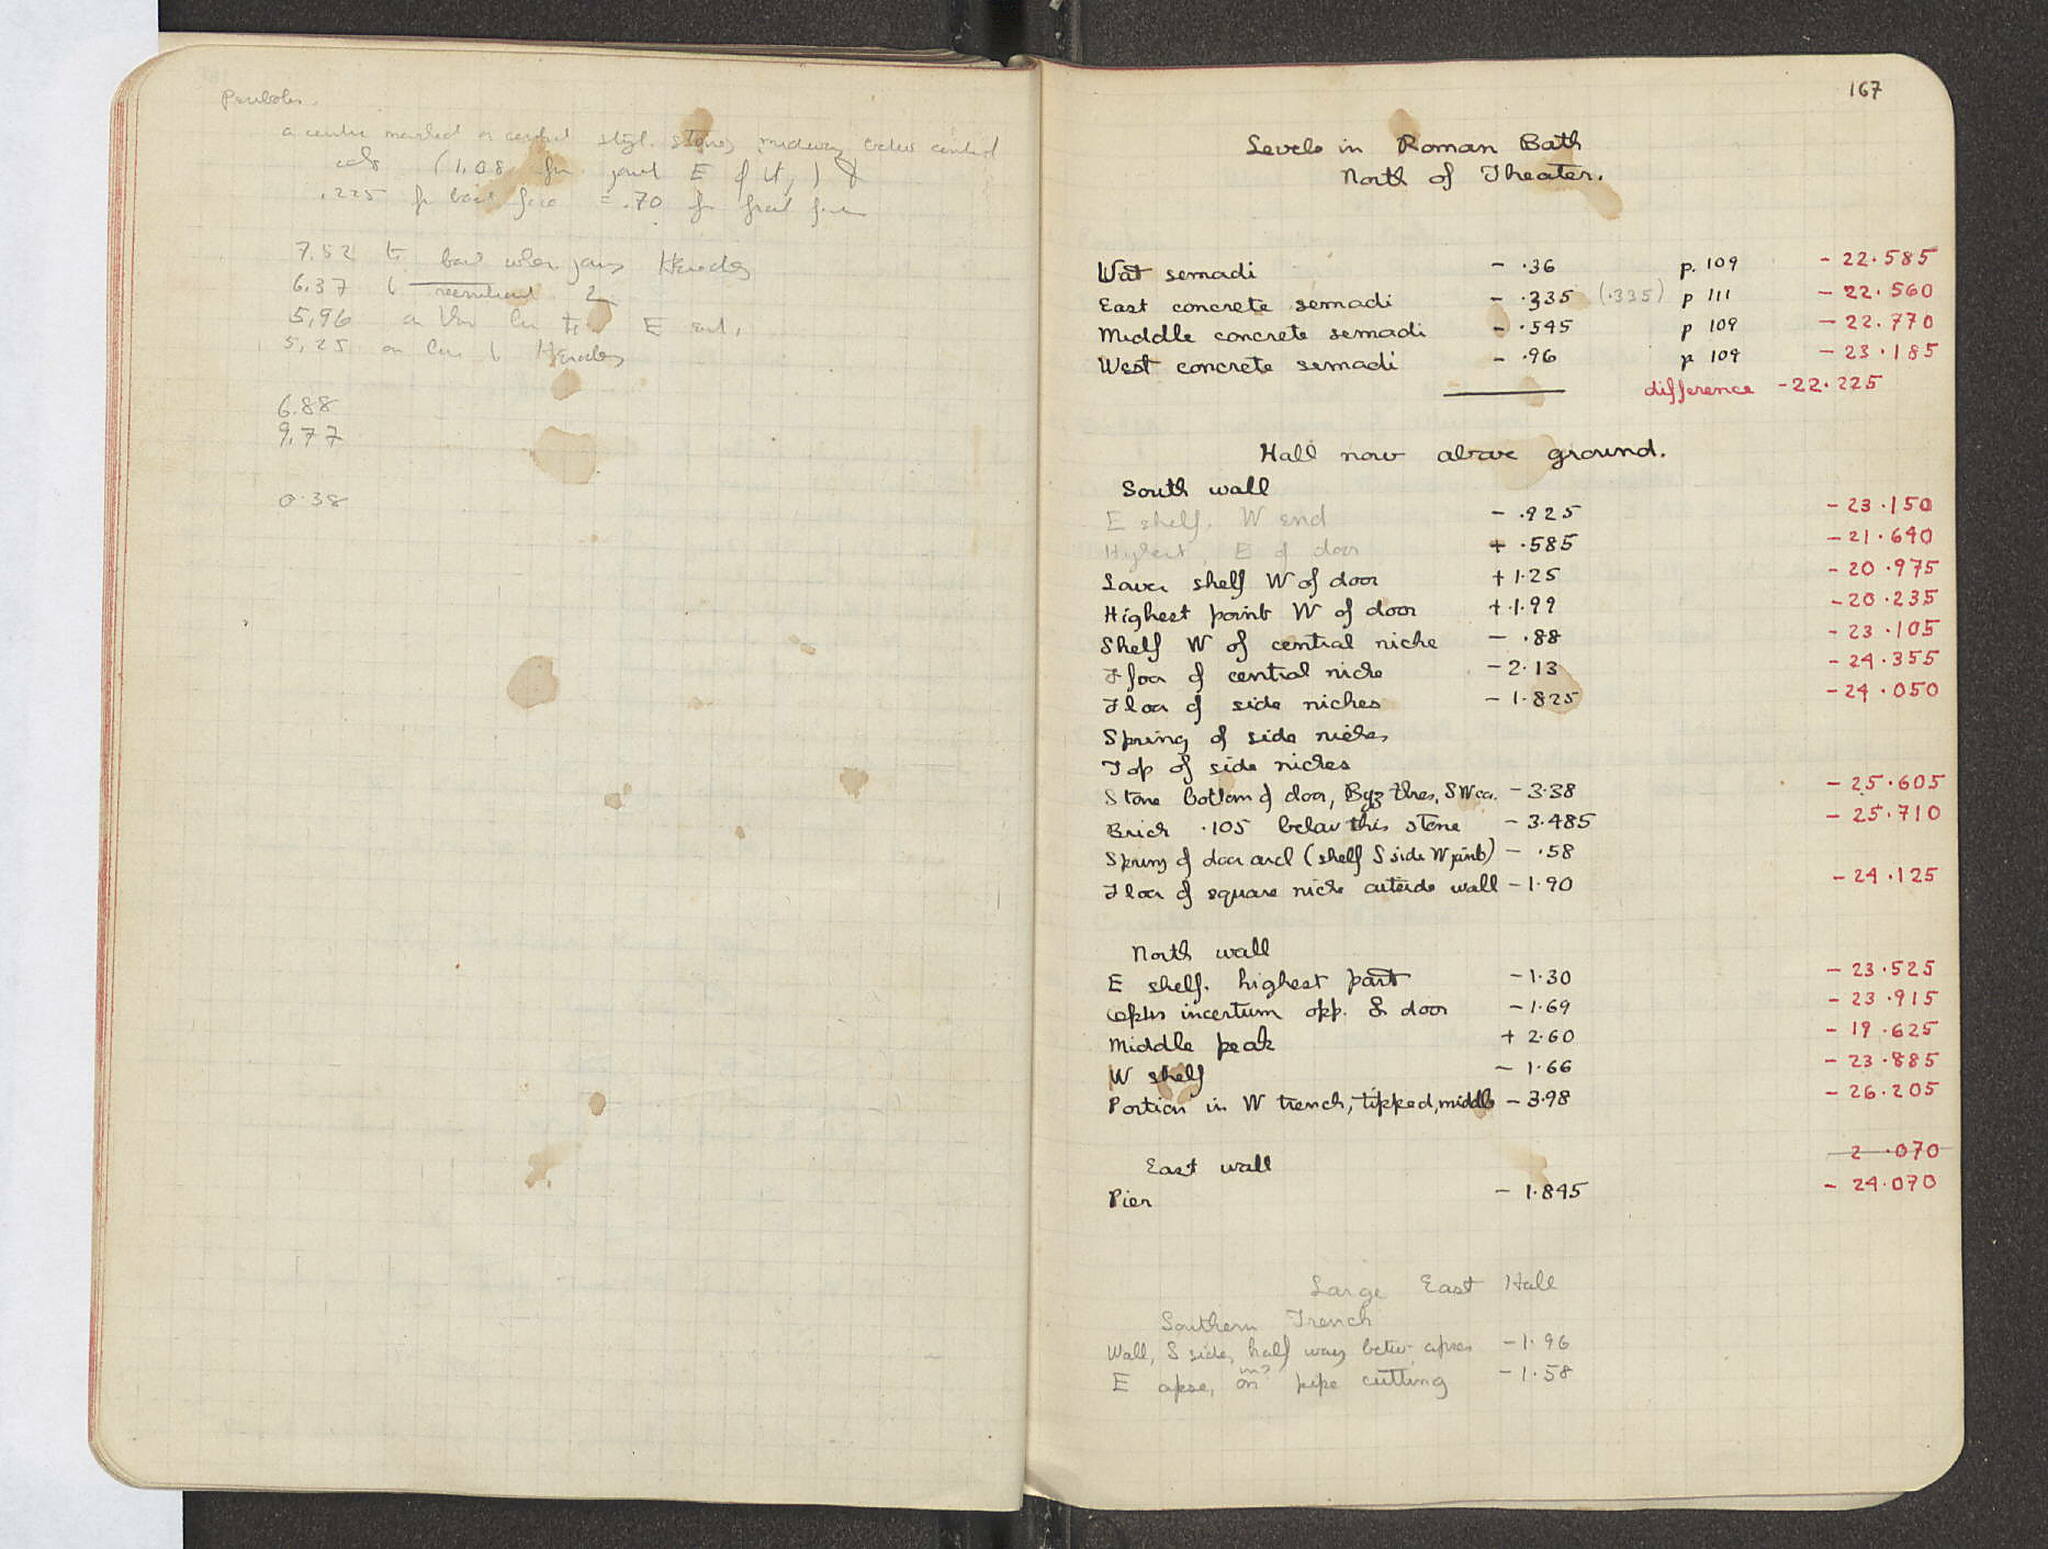 Peribolos.
a centre marked on central styl. stones midway betw central
cols (1.08 for joint E of it,) &
.225 for back face = .70 for front
7.52 to
6.37
5.96 on E
5.25 on
6.88
9.77
0.38
167
Levels in Roman Bath
North of Theater.
Wat semadi - .36 p. 109 - 22.585
East concrete semadi - .335 (.335) p 111 - 22.560
Middle concrete semadi - .545 p 109 - 22.770
West concrete semadi - .96 p 109 - 23.185
difference -22.225
Hall now above ground.
South wall
E shelf. W end - .925 - 23.150
Highest, E of door + .585 - 21.640
Lower shelf W of door + 1.25 - 20.975
Highest point W of door + 1.99 - 20.235
Shelf W of central niche - .88 - 23.105
Floor of central niche - 2.13 - 24.355
Floor of side niches - 1.825 - 24.050
Spring of side niches
Top of side niches
Stone bottom of door, Byz thres, SW cor. - 3.38 - 25.605
Brick .105 below this stone - 3.485 - 25.710
Spring of door arch (shelf S side W jamb) - .58
Floor of square niche outside wall - 1.90 - 24.125
North wall
E shelf. highest part - 1.30 - 23.525
opus incertum opp. S door - 1.69 - 23.915
Middle peak + 2.60 - 19.625
W shelf - 1.66 - 23.885
Portion in W trench, tipped, middle - 3.98 - 26.205
2 .070
East wall
Pier - 1.845 - 24.070
Large East Hall
Southern Trench
Wall, S side, half way betw. apses - 1.96
in?
E apse, on pipe cutting - 1.58